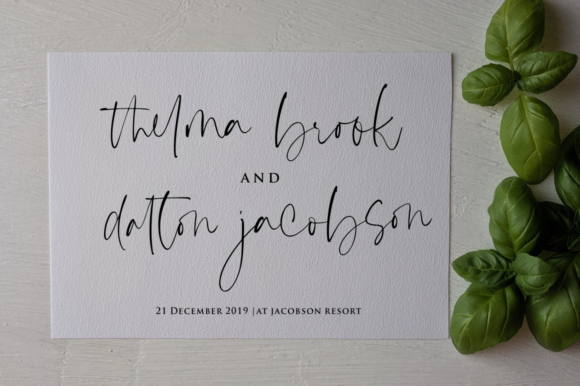 thelma brook
AND
datton jacobson
21 DECEMBER 2019 | AT JACOBSON RESORT